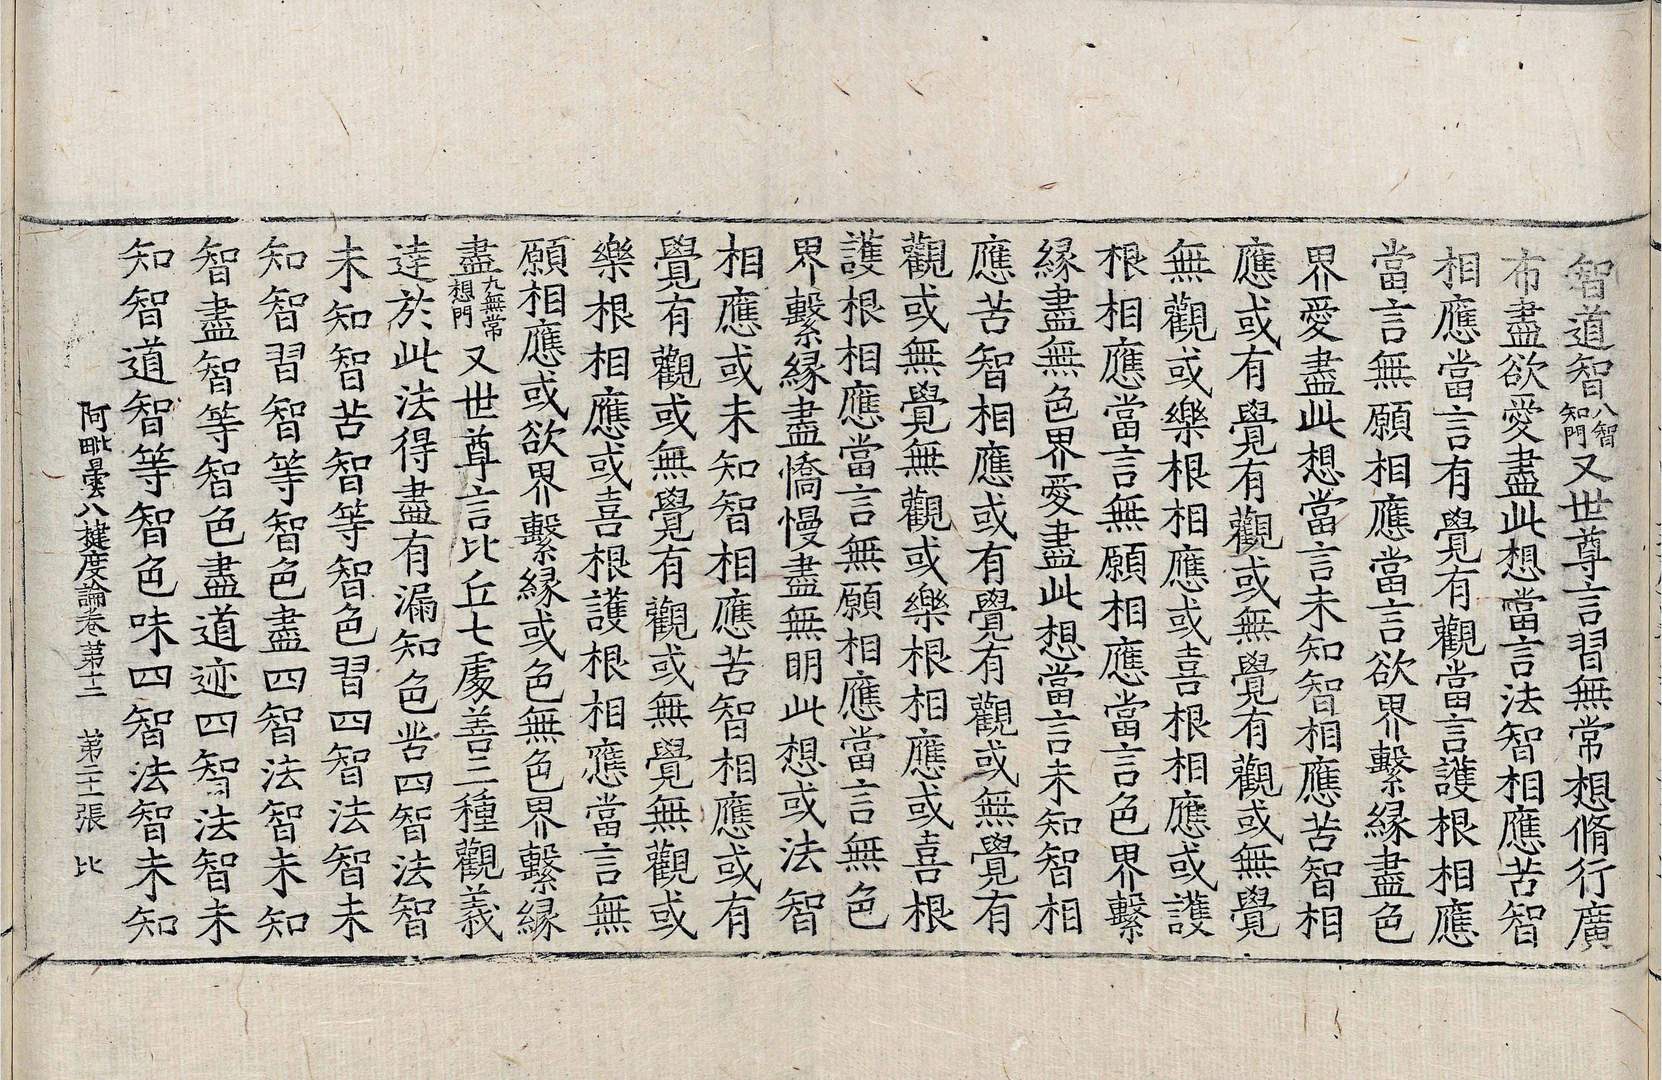 智道智八智知門又世尊言習無常想脩行廣
布盡欲愛盡此想當言法智相應苦智
相應當言有覺有觀當言護根相應
當言無願相應當言欲界繫緣盡色
界愛盡此想當言未知智相應苦智相
應或有覺有觀或無覺有觀或無覺
無觀或樂根相應或喜根相應或護
根相應當言無願相應當言色界繫
緣盡無色界愛盡此想當言未知智相
應苦智相應或有覺有觀或無覺有
觀或無覺無觀或樂根相應或喜根
護根相應當言無願相應當言無色
界繫緣盡憍慢盡無明此想或法智
相應或未知智相應苦智相應或有
覺有觀或無覺有觀或無覺無觀或
樂根相應或喜根護根相應當言無
願相應或欲界繫緣或色無色界繫緣
盡九無常想門又世尊言比丘七處善三種觀義
達於此法得盡有漏知色苦四智法智
未知智苦智等智色習四智法智未
知智習智等智色盡四智法智未知
智盡智等智色盡道迹四智法智未
知智道智等智色味四智法智未知
阿毗曇八揵度論卷第十二 第二十張 比